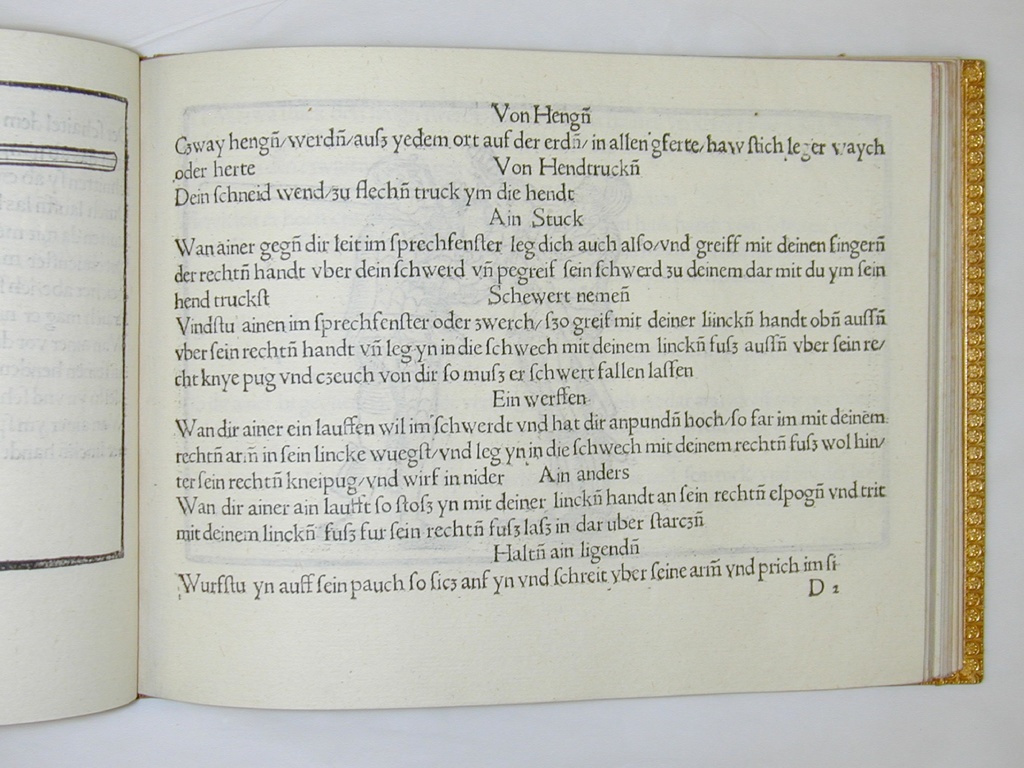 Von Hengñ
Czway hengñ/werdñ/ausz yedem ort auf der erdñ/in allen gferte/haw ſtich leger waych
oder herte Von Hendtruckñ
Dein ſchneid wend/zu flechñ truck ym die hendt
Ain Stuck
Wan ainer gegñ dir leit im ſprechfenſter leg dich auch alſo/vnd greiff mit deinen fingerñ
der rechtñ handt vber dein ſchwerd vñ pegreif ſein ſchwerd zu deinem dar mit du ym ſein
hend truckſt Schewert nemeñ
Vindſtu ainen im ſprechfenſter oder zwerch/ſzo greif mit deiner liinckñ handt obñ auſſñ
vber ſein rechtñ handt vñ leg yn in die ſchwech mit deinem linckñ fuſz auſſñ vber ſein re/
cht knye pug vnd czeuch von dir ſo muſz er ſchwert fallen laſſen
Ein werffen
Wan dir ainer ein lauffen wil im ſchwerdt vnd hat dir anpundñ hoch/ſo far im mit deinem
rechtñ arm̃ in ſein lincke wuegſt/vnd leg yn in die ſchwech mit deinem rechtñ fuſz wol hin/
ter ſein rechtñ kneipug/vnd wirf in nider Ain anders
Wan dir ainer ain laufft ſo ſtoſz yn mit deiner linckñ handt an ſein rechtñ elpogñ vnd trit
mit deinem linckñ fuſz fur ſein rechtñ fuſz laſz in dar uber ſtarczñ
Haltñ ain ligendñ
Wurfſtu yn auff ſein pauch ſo ſicz anf yn vnd ſchreit vber ſeine arm̃ vnd prich im ſi
D 2